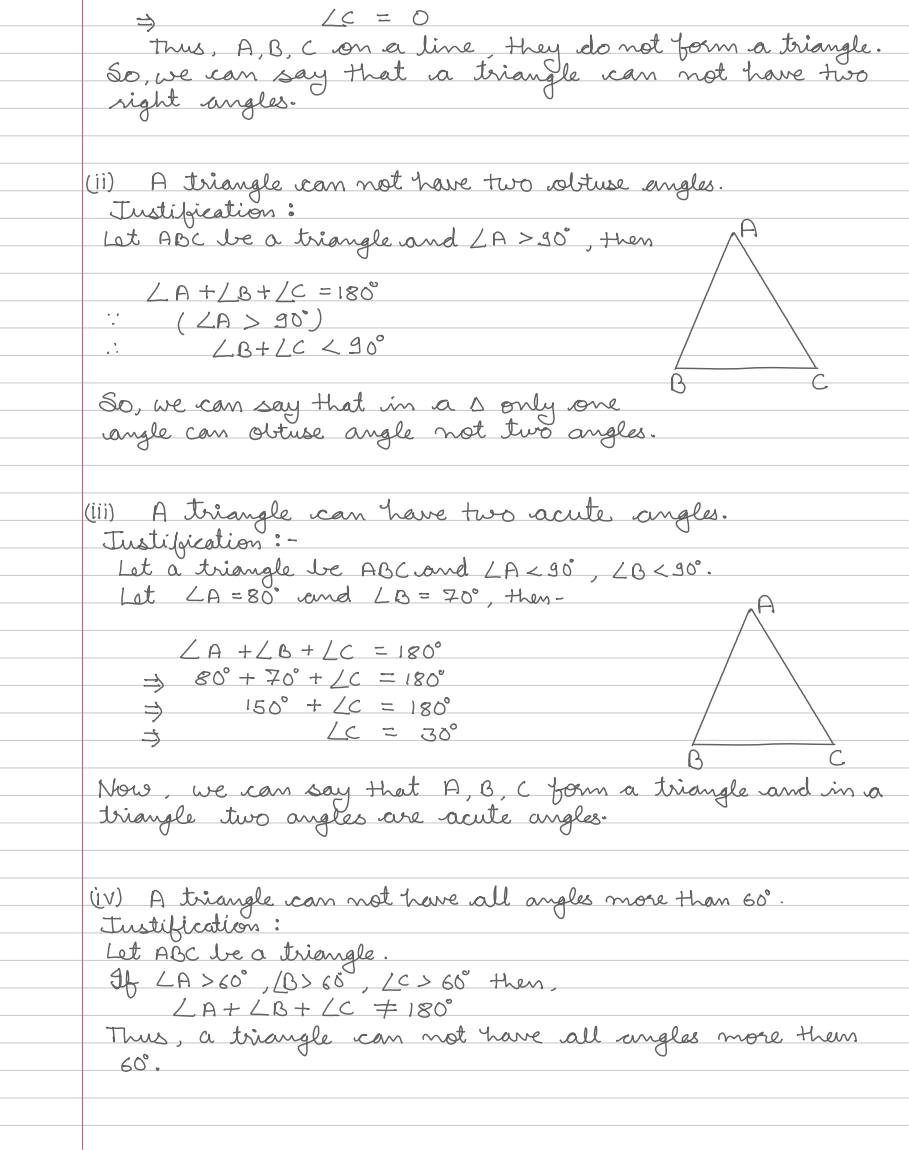 ⇒ ∠C = 0
Thus, A, B, C on a line, they do not form a triangle.
So, we can say that a triangle can not have two
right angles.
(ii) A triangle can not have two obtuse angles.
Justification :
Let ABC be a triangle and ∠A > 90°, then
A
∠A + ∠B + ∠C = 180°
∵ (∠A > 90°)
∴ ∠B + ∠C < 90°
B C
So, we can say that in a Δ only one
angle can obtuse angle not two angles.
(iii) A triangle can have two acute angles.
Justification :-
Let a triangle be ABC and ∠A < 90°, ∠B < 90°.
Let ∠A = 80° and ∠B = 70°, then-
A
∠A + ∠B + ∠C = 180°
⇒ 80° + 70° + ∠C = 180°
⇒ 150° + ∠C = 180°
⇒ ∠C = 30°
B C
Now, we can say that A, B, C form a triangle and in a
triangle two angles are acute angles.
(iv) A triangle can not have all angles more than 60°.
Justification :
Let ABC be a triangle.
If ∠A > 60°, ∠B > 60°, ∠C > 60° then,
∠A + ∠B + ∠C ≠ 180°
Thus, a triangle can not have all angles more them
60°.